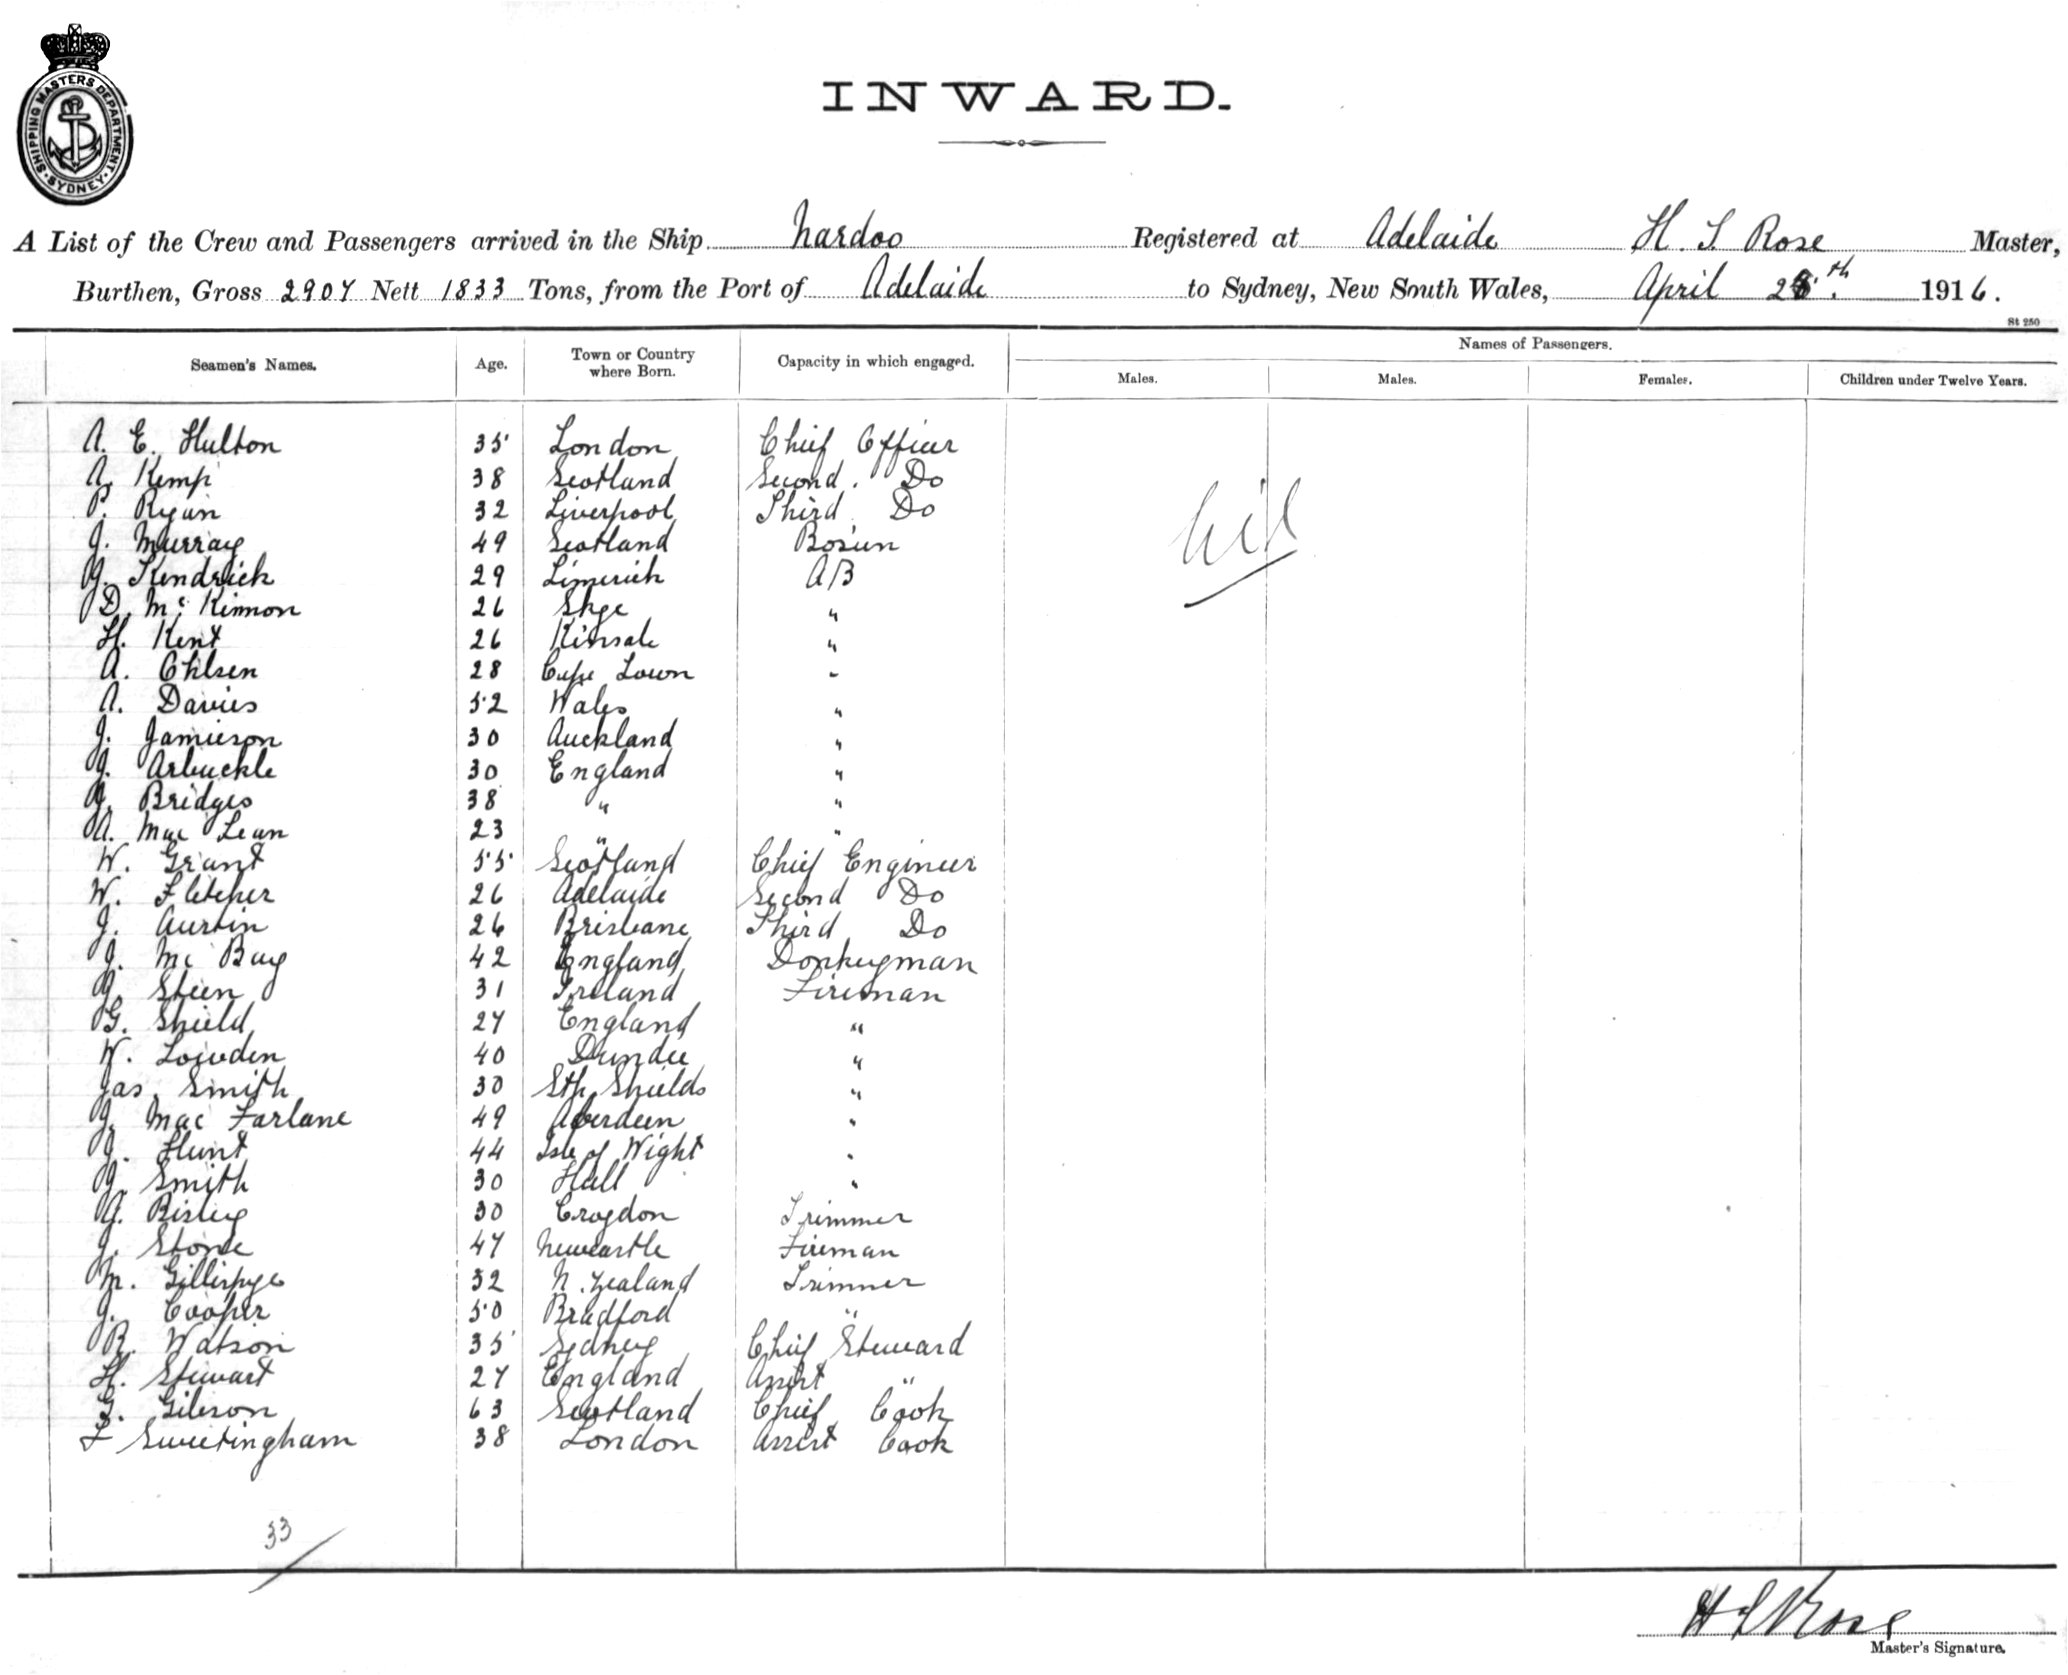 SHIPPING MASTERS DEPARTMENT
SYDNEY
INWARD.
A List of the Crew and Passengers arrived in the Ship Nardoo Registered at Adelaide H. S Rose Master,
Burthen, Gross 2907 Nett 1833 Tons, from the Port of Adelaide to Sydney, New South Wales, April th. 1916.
St 250
Seamen's Names. Age. Town or Country where Born. Capacity in which engaged. Names of Passengers.
Males. Males. Females. Children under Twelve Years.
A. E. Hulton 35 London Chief Officer
A. Kemp 38 Scotland Second. Do
P. Ryan 32 Liverpool Third Do
J. Murray 49 Scotland Bosun
J. Kendrick 29 Limerick AB
D. Mc Kinnon 26 Skye "
H. Kent 26 Kinsale "
A. Ohlsen 28 Cape Town "
A. Davies 52 Wales "
J. Jamieson 30 Auckland "
J. Arbuckle 30 England "
J. Bridges 38 " "
A. Mac Lean 23 " "
W. Grant 55 Scotland Chief Engineer
W. Fletcher 26 Adelaide Second Do
J. Austin 26 Brisbane Third Do
J. Mc Bay 42 England Donkeyman
J. Steen 31 Ireland Fireman
G. Shield 27 England "
W. Lowden 40 Dundee "
Jas Smith 30 Sth Shields "
J. Mac Farlane 49 Aberdeen "
J. Hunt 44 Isle of Wight "
J. Smith 30 Hull "
A. Risley 30 Croydon Trimmer
J. Stone 47 Newcastle Fireman
M. Gillispye 32 N. Zealand Trimmer
J. Cooper 50 Bradford "
R. Watson 35 Sydney Chief Steward
H. Stewart 27 England Assist "
G. Gibson 63 Scotland Chief Cook
F Sweetingham 38 London Assist Cook
nil
33
H S Rose
Master's Signature.